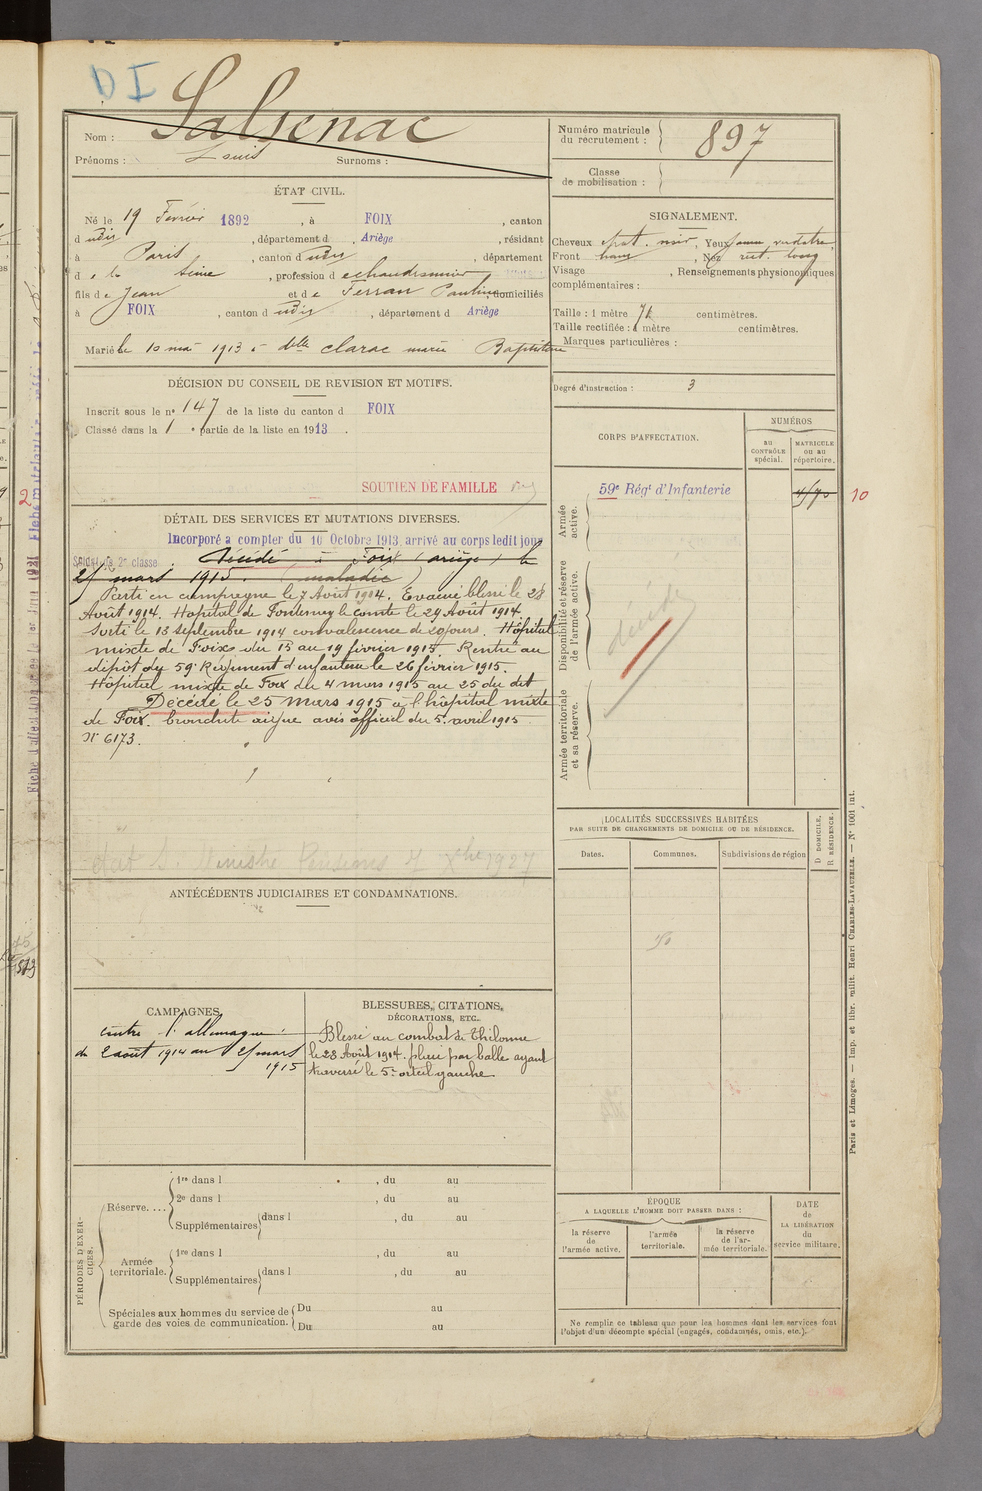 DI
Nom : Salsenac
Prénoms : Louis Surnoms :
Numéro matricule
du recrutement : 897
Classe
de mobilisation :
ÉTAT CIVIL.
Né le 19 Février 1892, à FOIX, canton
d udit, département d Ariège, résidant
à Paris, canton d udit, département
d e la Seine, profession d e chaudronnier
fils de Jean et de Ferran Pauline, domiciliés
à FOIX, canton d udit, département d Ariège
Marié le 10 mai 1913 à delle Clarac marie Baptistine
SIGNALEMENT.
Cheveux chat. noir, Yeux jaune verdatre
Front haut, Nez rect. long
Visage , Renseignements physionomiques
complémentaires :
Taille : 1 mètre 76 centimètres.
Taille rectifiée : 1 mètre centimètres.
Marques particulières :
Degré d'instruction : 3
DÉCISION DU CONSEIL DE REVISION ET MOTIFS.
Inscrit sous le no 147 de la liste du canton d FOIX
Classé dans la 1 e partie de la liste en 1913.
SOUTIEN DE FAMILLE
CORPS D'AFFECTATION.
NUMÉROS
AU CONTRÔLE spécial.
MATRICULE ou au répertoire.
Armée active.
59e Régt d'Infanterie
10
Disponibilité et réserve de l'armée active.
décédé
Armée territoriale et sa réserve.
DÉTAIL DES SERVICES ET MUTATIONS DIVERSES.
Incorporé à compter du 10 Octobre 1913, arrivé au corps ledit jour
Soldat de 2e classe. Décédé à Foix (ariège) le
25 mars 1915. (maladie)
Parti en campagne le 7 Août 1914. Evacué blessé le 28
Août 1914. Hopital de Fontenay le comte le 29 Août 1914.
Sorti le 13 septembre 1914 convalescence de 20 jours. Hôpital
mixte de Foix du 15 au 19 février 1915. Rentré au
dépôt du 59e Régiment d'infanterie le 26 février 1915.
Hôpital mixte de Foix du 4 mars 1915 au 25 du dit
Décédé le 25 mars 1915 à l'hôpital mixte
de Foix. bronchite aigue avis officiel du 5. avril 1915
No 6173.
1927
LOCALITÉS SUCCESSIVES HABITÉES
PAR SUITE DE CHANGEMENTS DE DOMICILE OU DE RÉSIDENCE.
Dates.
Communes.
Subdivisions de région
D DOMICILE,
R RÉSIDENCE.
ANTÉCÉDENTS JUDICIAIRES ET CONDAMNATIONS.
CAMPAGNES.
contre l'allemagne :
du 2 août 1914 au 25 mars
1915
BLESSURES, CITATIONS,
DÉCORATIONS, ETC.
Blessé au combat de Thilonne
le 28 Août 1914. plaie par balle ayant
traversé le 5e orteil gauche
PÉRIODES D'EXERCICES.
Réserve....
1re dans l , du au
2e dans l , du au
Supplémentaires dans l , du au
Armée territoriale.
1re dans l , du au
Supplémentaires dans l , du au
Spéciales aux hommes du service de
garde des voies de communication.
Du au
Du au
ÉPOQUE
A LAQUELLE L'HOMME DOIT PASSER DANS :
la réserve de l'armée active.
l'armée territoriale.
la réserve de l'armée territoriale.
DATE de LA LIBÉRATION du service militaire.
Ne remplir ce tableau que pour les hommes dont les services font
l'objet d'un décompte spécial (engagés, condamnés, omis, etc.).
Paris et Limoges. — Imp. et libr. milit. Henri CHARLES-LAVAUZELLE. — No 1001 int.